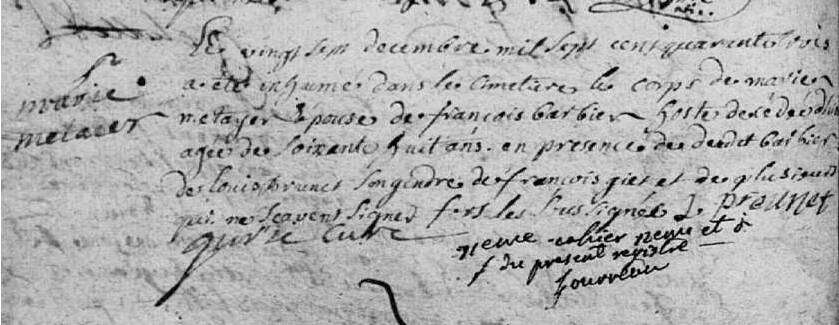 Le vingt sept decembre mil sept cent quarante trois
a ete inhumé dans le cimetiere le corps de marie
metayer épouse de françois barbier hoste decedee du
agee de soixante huit ans. en presence de dudit barbier
de louis prunet son gendre de françois giet et de plusieurs
qui ne scavent signer fors les sussignés L preunet
curé
marie
metaier
neme cahier neme et
du present registre
fourreau